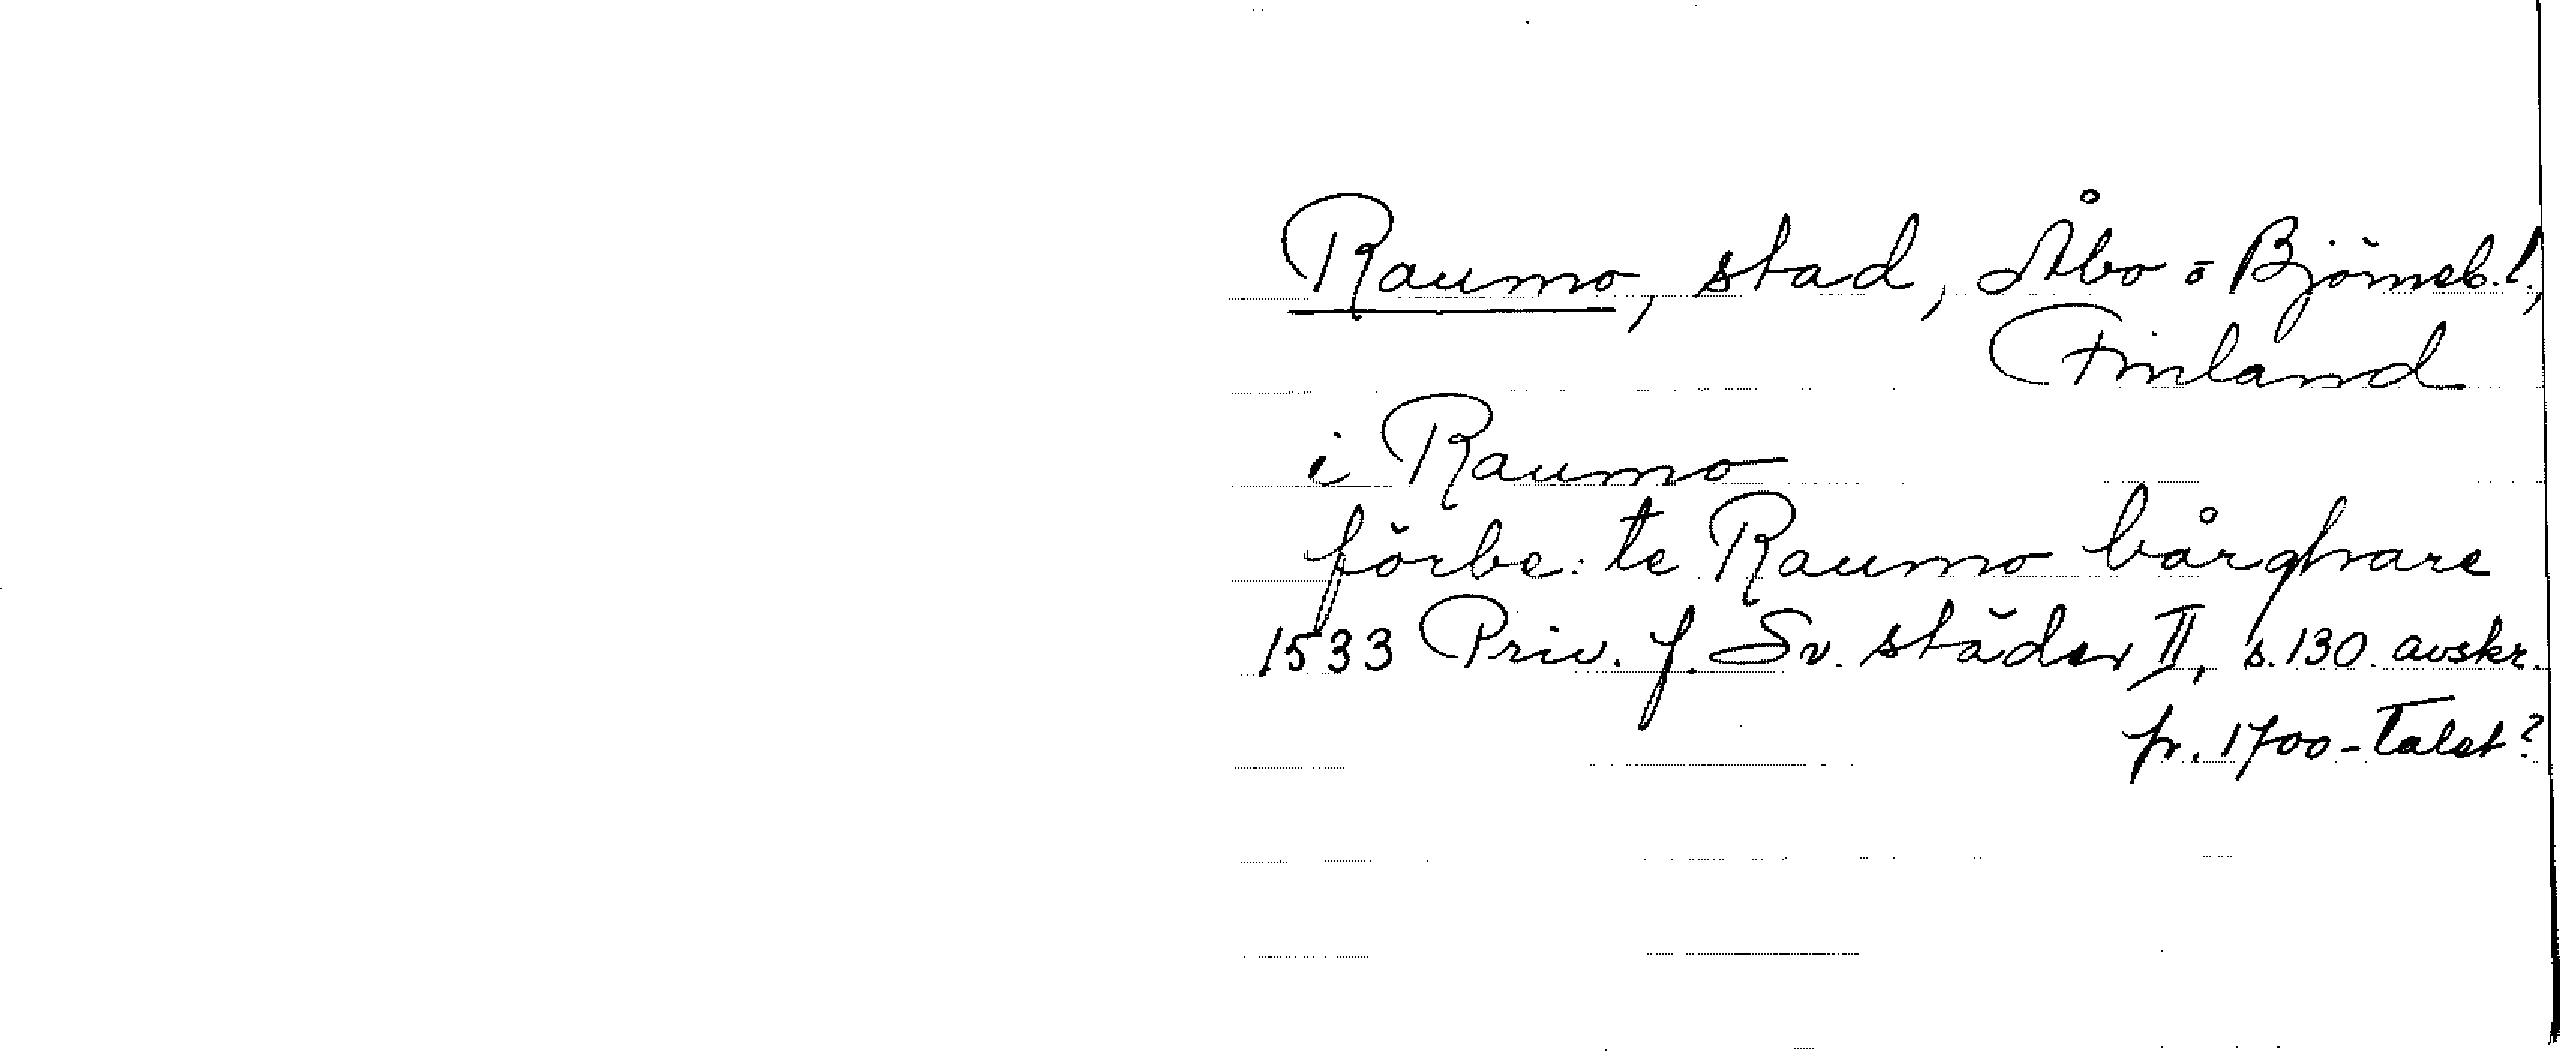 Raumo, stad, Åbo o Björneb. l.,
Finland
i Raumo
förbe: te Raumo bårghare
1533 Priv. f. Sv. städer II, s. 130. avskr.
fr. 1700-talet?